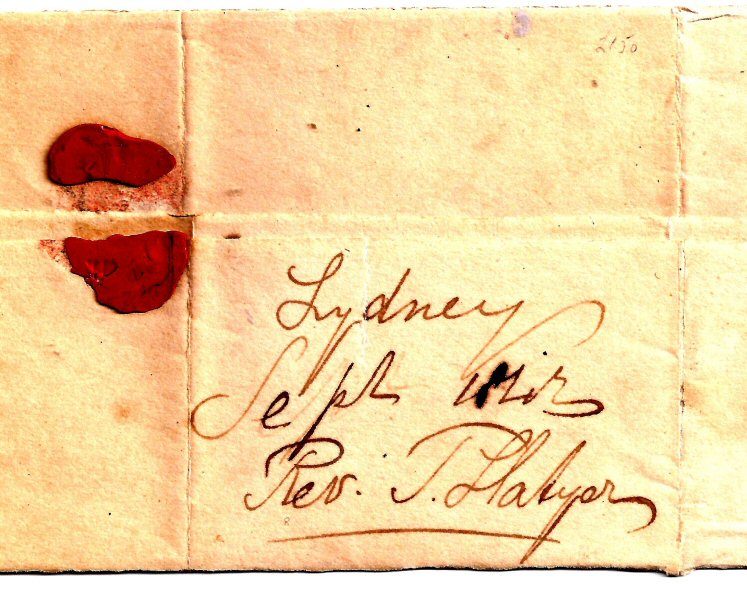 2150
Sydney
Sept
Rev. T. Slatyer